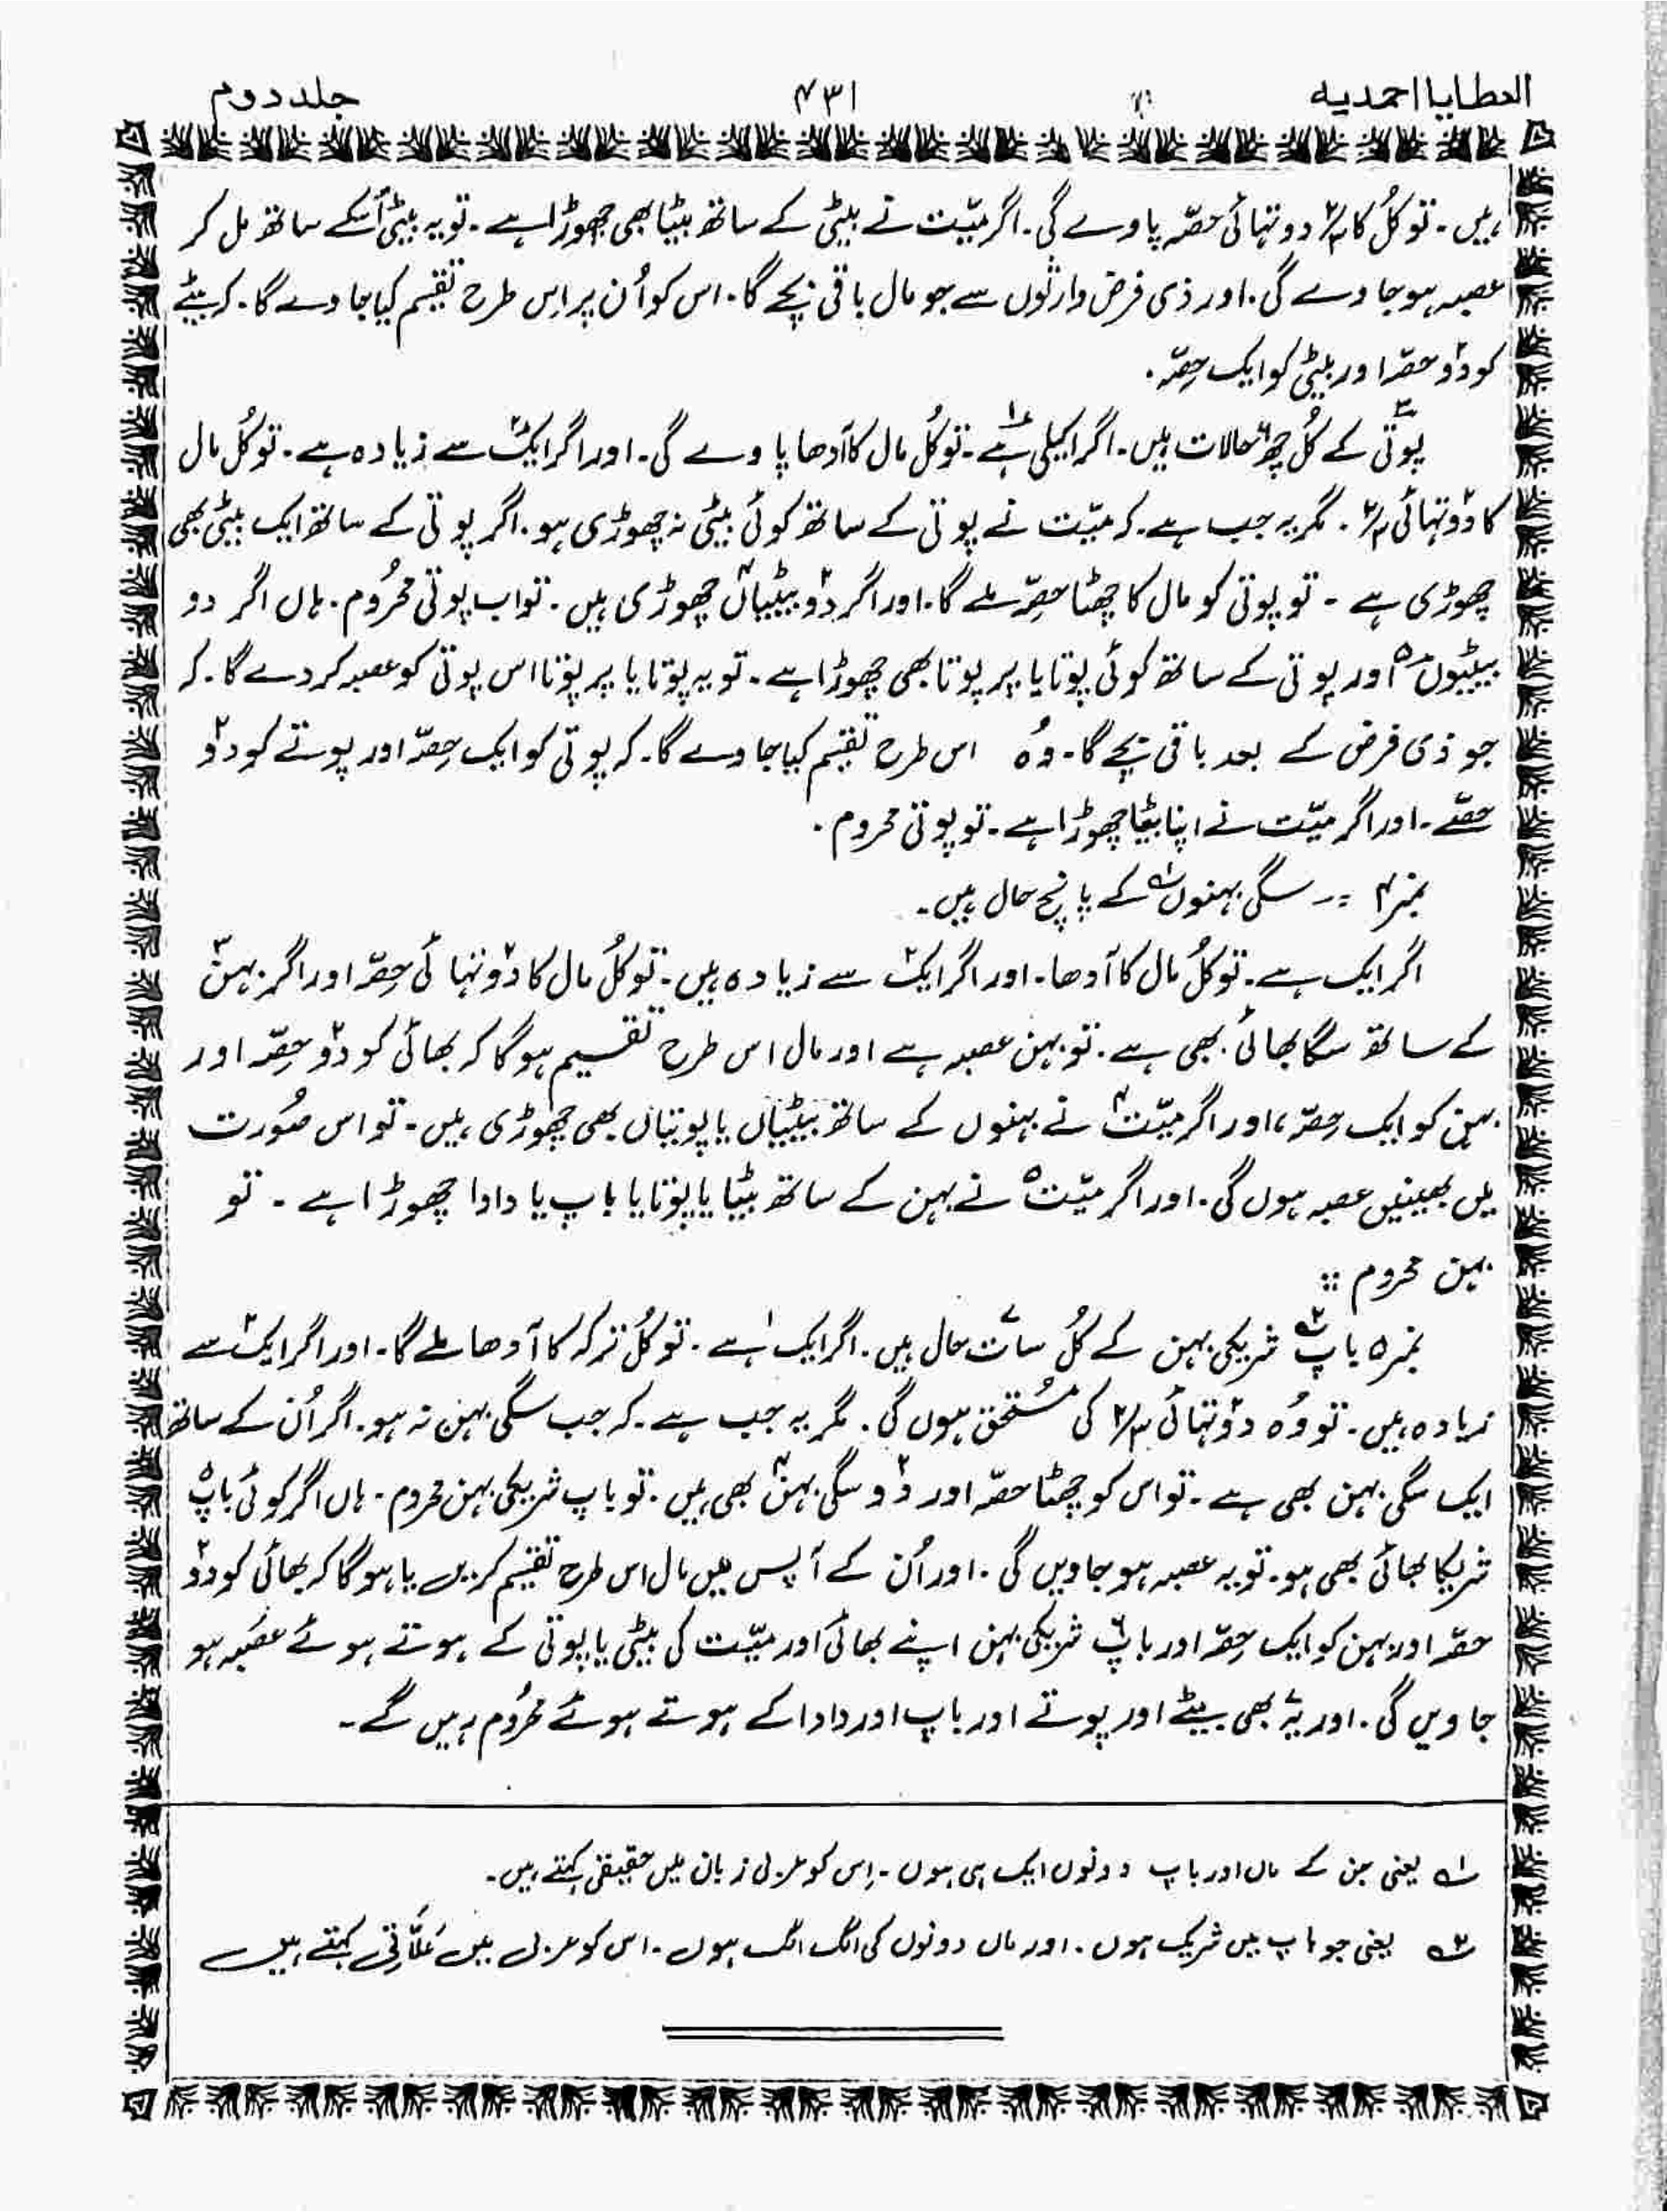 العطایا احمدیہ ۴۳۱ جلد دوم
ہیں۔ تو کُل کا ۲/۳ دو تہائی حصّہ پاوے گی۔ اگر میّت نے بیٹی کے ساتھ بیٹا بھی چھوڑا ہے۔ تو یہ بیٹی اُسکے ساتھ مل کر
عصبہ ہو جاوے گی۔ اور ذی فرض وارثوں سے جو مال باقی بچے گا۔ اس کو اُن پر اِس طرح تقسیم کیا جاوے گا۔ کہ بیٹے
کو دو۲ حصّہ اور بیٹی کو ایک حِصّہ۔
پوتی۳ کے کُل چھ۶ حالات ہیں۔ اگر اکیلی۱ ہے۔ تو کُل مال کا آدھا پاوے گی۔ اور اگر ایک۲ سے زیادہ ہے۔ تو کُل مال
کا دو۲ تہائی ۲/۳۔ مگر یہ جب ہے۔ کہ میّت نے پوتی کے ساتھ کوئی بیٹی نہ چھوڑی ہو۔ اگر پوتی کے ساتھ ایک بیٹی بھی
چھوڑی ہے ۔ تو پوتی کو مال کا چھٹا حِصّہ ملے گا۔ اور اگر دو۲ بیٹیاں۴ چھوڑی ہیں۔ تو اب پوتی محرُوم۔ ہاں اگر دو
بیٹیوں۵ اور پوتی کے ساتھ کوئی پوتا یا پر پوتا بھی چھوڑا ہے۔ تو یہ پوتا یا پر پوتا اس پوتی کو عصبہ کر دے گا۔ کہ
جو ذی فرض کے بعد باقی بچے گا۔ وُہ اس طرح تقسیم کیا جاوے گا۔ کہ پوتی کو ایک حِصّہ اور پوتے کو دو۲
حصّے۔ اور اگر میّت نے اپنا بیٹا چھوڑا ہے۔ تو پوتی محروم۔
نمبر۴ :۔ سگی بہنوں۱ کے پانچ حال ہیں۔
اگر ایک ہے۔ تو کُل مال کا آدھا۔ اور اگر ایک۲ سے زیادہ ہیں۔ تو کُل مال کا دو۲ تہائی حِصّہ اور اگر بہن۳
کے ساتھ سگا بھائی بھی ہے۔ تو بہن عصبہ ہے اور مال اس طرح تقسیم ہوگا کہ بھائی کو دو۲ حِصّہ اور
بہن کو ایک حِصّہ، اور اگر میّت۴ نے بہنوں کے ساتھ بیٹیاں یا پوتیاں بھی چھوڑی ہیں۔ تو اس صُورت
میں بہینیں عصبہ ہوں گی۔ اور اگر میّت۵ نے بہن کے ساتھ بیٹا یا پوتا یا باپ یا دادا چھوڑا ہے ۔ تو
بہن محروم ::
نمبر۵ باپ۲ شریکی بہن کے کُل سات۷ حال ہیں۔ اگر ایک۱ ہے۔ تو کُل ترکہ کا آدھا ملے گا۔ اور اگر ایک۲ سے
زیادہ ہیں۔ تو وُہ دو۲ تہائی ۲/۳ کی مُستحق ہوں گی۔ مگر یہ جب ہے۔ کہ جب سگی بہن نہ ہو۔ اگر اُن کے ساتھ
ایک سگی بہن بھی ہے۔ تو اس کو چھٹا حصّہ اور دو۲ سگی بہن۴ بھی ہیں۔ تو باپ شریکی بہن محروم۔ ہاں اگر کوئی باپ۵
شریکا بھائی بھی ہو۔ تو یہ عصبہ ہو جاویں گی۔ اور اُن کے آپس میں مال اس طرح تقسیم کریں یا ہوگا کہ بھائی کو دو۲
حصّہ اور بہن کو ایک حِصّہ اور باپ۶ شریکی بہن اپنے بھائی اور میّت کی بیٹی یا پوتی کے ہوتے ہوئے عصَبہ ہو
جاویں گی۔ اور یہ۷ بھی بیٹے اور پوتے اور باپ اور دادا کے ہوتے ہوئے محرُوم رہیں گے۔
۱؎ یعنی جن کے ماں اور باپ دونوں ایک ہی ہوں۔ اِس کو عربی زبان میں حقیقی کہتے ہیں۔
۲؎ یعنی جو باپ میں شریک ہوں۔ اور ماں دونوں کی الگ الگ ہوں۔ اس کو عربی میں عَلَّاتِی کہتے ہیں